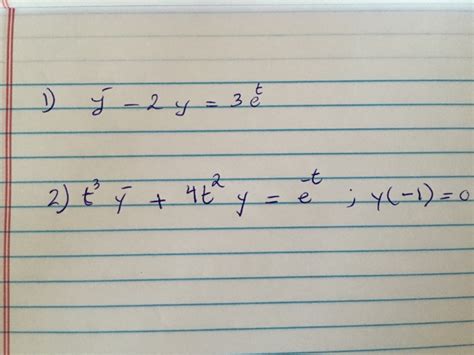 1) ȳ - 2y = 3e^t
2) t³ ȳ + 4t² y = e^-t ; y(-1) = 0